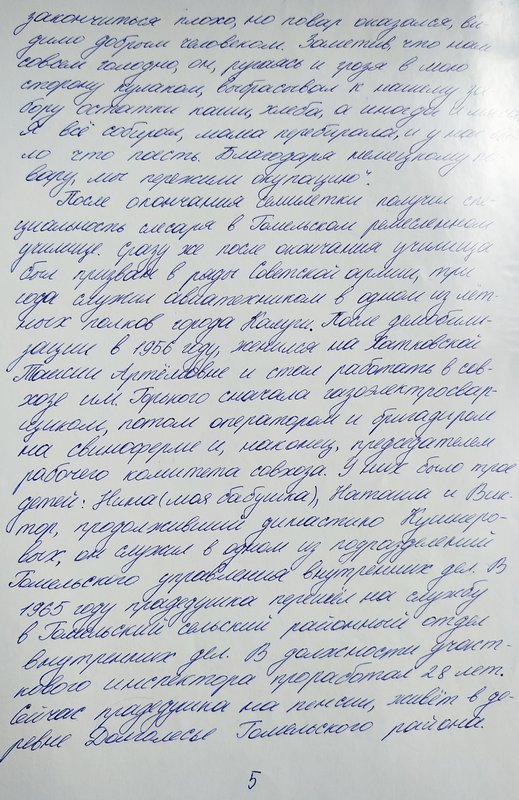 закончиться плохо, но повар оказался, ви-
димо добрым человеком. Заметив, что нам
совсем голодно, он, ругаясь и грозя в мою
сторону кулаком, выбрасывал к нашему за-
бору остатки каши, хлеба, а иногда и мяса
Я всё собирал, мама перебирала, и у нас бы-
ло что поесть. Благодаря немецкому по-
вару, мы пережили окупацию".
После окончания семилетки получил спе-
циальность слесаря в Гомельском ремесленном
училище. Сразу же после окончания училища
был призван в ряды Советской армии, три
года служил авиатехником в одном из лёт-
ных полков города Калуги. После демобили-
зации в 1956 году, женился на Хатковской
Таисии Артёмовне и стал работать в сов-
хозе им. Горького сначала газоэлектросвар-
щиком, потом оператором и бригадиром
на свиноферме и, наконец, председателем
рабочего комитета совхоза. У них было трое
детей: Нина (моя бабушка), Наташа и Вик-
тор, продолживший династию Кушнеро-
вых, он служил в одном из подразделений
Гомельского управления внутренних дел. В
1965 году прадедушка перешёл на службу
в Гомельский сельский районный отдел
внутренних дел. В должности участ-
кового инспектора проработал 28 лет.
Сейчас прадедушка на пенсии, живёт в де-
ревне Долголесье Гомельского района.
5